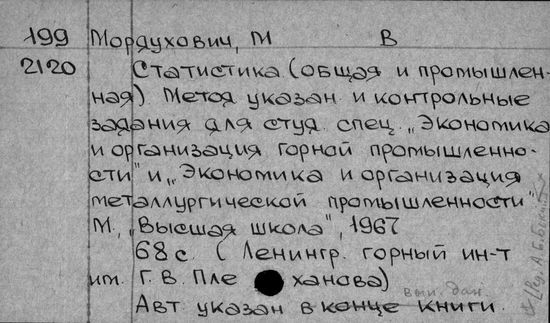 199 Мордухович, М В
2120 Статистика (общая и промышлен-
ная) Метод указан и контрольные
задания для студ. спец. „Экономика
и организация горной промышленно-
сти" и „Экономика и организация
металлургической промышленности"
М., „Высшая школа", 1967
68 с. (Ленингр. горный ин-т
им. Г. В. Плеханова)
вып. дан.
Авт указан в конце книги.